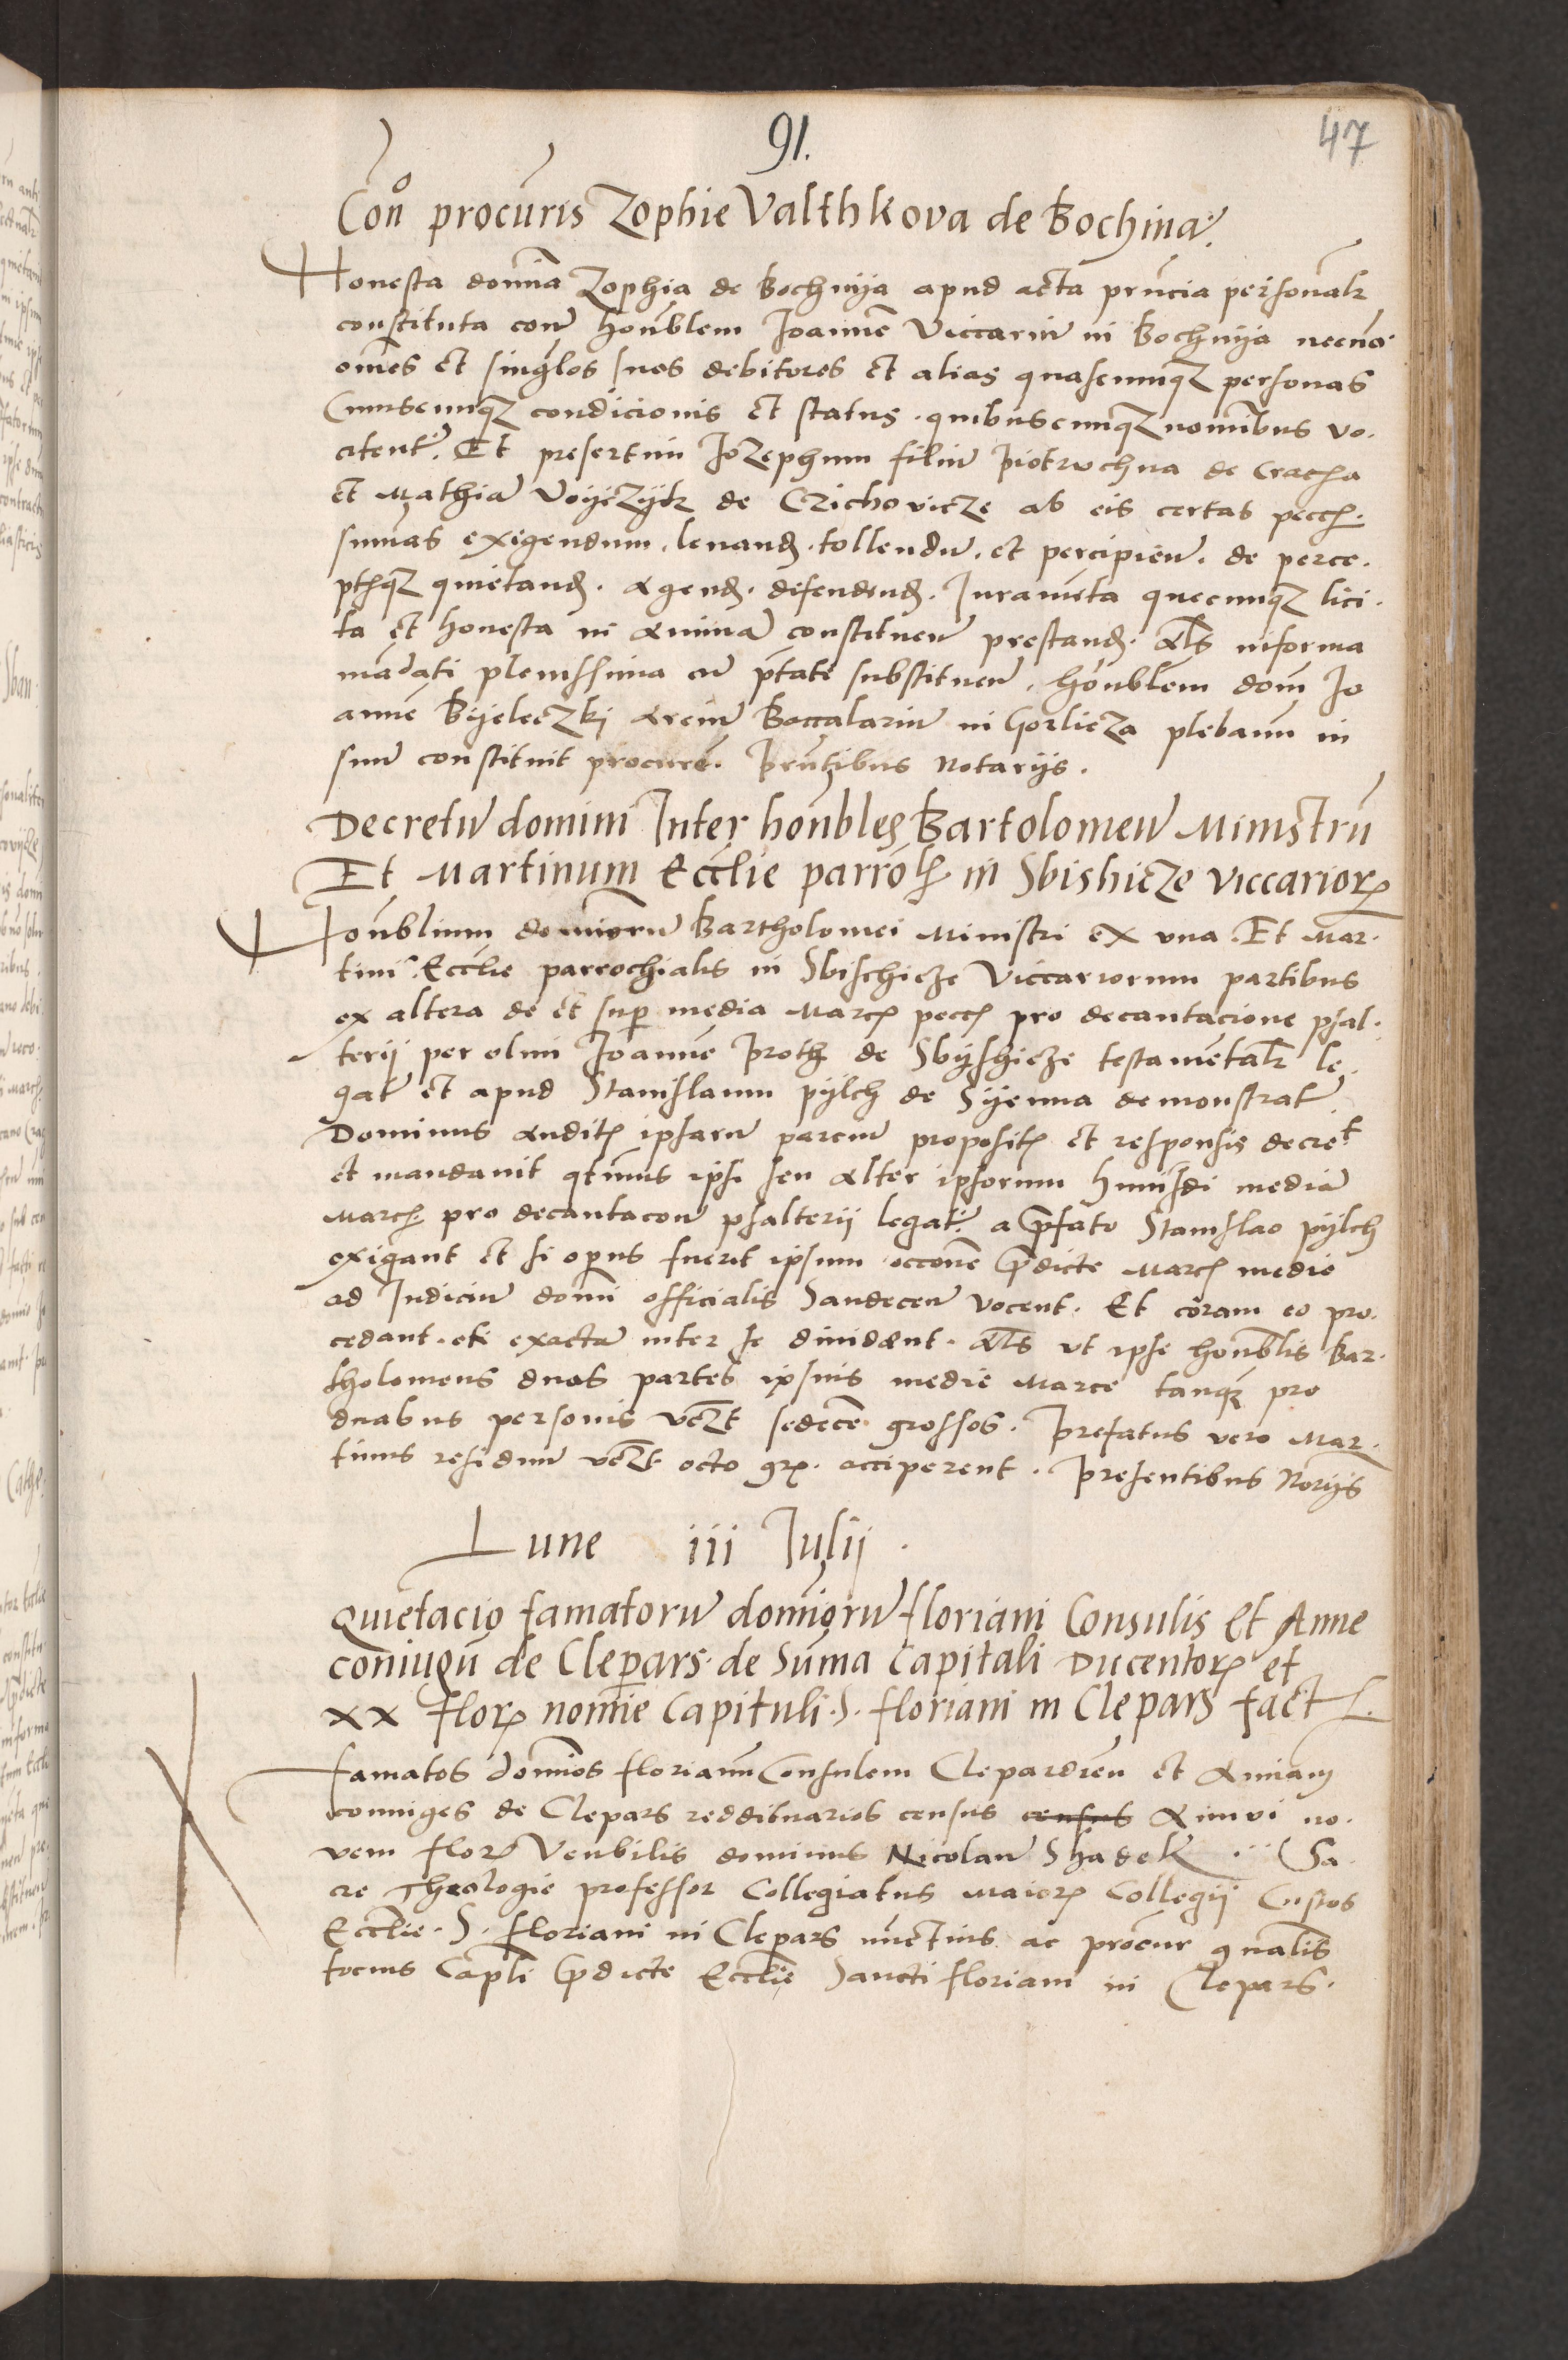 91.
47
Con̊ procur̄is Zophie Valthkova de Bochina.
Honesta domīa Zophia de Bochnija apud acta prn̄cia personalr
constituta con̄ hon̄blem Joannē Viccariū in Bochnija necnō
om̄es et singl̄os suos debitores et alias quascunqȝ personas
Cuiuscunqȝ condicionis et status. quibuscunqȝ nomībus vo.
citent.̄ Et presertim Jozephum filiū piotruchna de
et Mathiā Voijczijk de Czichovicze ab eis certas pecc̄ꝭ.
summas exigendum. levandꝭ. tollendū. et percipien̄. de perce.
ptꝭqȝ quietandꝭ. Agendꝭ. defendendꝭ. Juramēta quecunqȝ lici.
ta et honesta in animā constituen̄ prestandꝭ. Als̄ informa
mādati plenissima cū ptāte substituen̄. hon̄blem dom̄ Jo
annē Bijeleczkj Arciū Baccalariū in Gorlicza plebanū in
suū constituit procurē. prn̄tibus Notarijs.
Decretū domini Inter hon̄bles Bartolomeū Ministrū
Et Martinum Eccl̄ie parrōlꝭ in Sbishicze viccarioꝝ
Hon̄blium dominorū Bartholomei Ministri ex una. Et Mar.
tini Eccl̄ie parrochialis in Sbischicze Viccariorum partibus
ex altera de et sup̄ media Marcꝭ peccꝭ pro decantacione psal.
terij per olim Joannē proth de Sbijshicze testamētalr le.
gat̄ et apud Stanislaum pijlch de Sijenna demonstrat̄.
Dominus auditꝭ ipsarū parciū propositꝭ et responsis decret
et mandavit qt̄nus ipsi seu alter ipsorum hmōi mediā
Marcꝭ. pro decantacon̄ psalterij legat̄. a p̄fato Stanislao pijlch
exigant et si opus fuerit ipsum occonē p̄dicte Marcꝭ medie
ad Judiciū domī officialis Sandecen̄ vocent. Et corām eo pro.
cedant. exacta inter se dividant. Als̄ ut ipse hon̄blis Bar.
tholomeus duas partes ipsius medie Marce tanqȝ pro
duabus personis sedecē grossos. Prefatus vero Mar.
tinus residuū octo grꝭ. acciperent. Presentibus Norijs
Lune iii Julij.
Quietacio famatorū domīorū floriani Consulis Et Anne
coniugū de Clepars. de Sum̄a Capitali Ducentoꝝ et
xx floꝝ nomīe Capituli. S. floriani in Clepars fact̄.
famatos domīos florianū Consulem Clepardien̄ et Annam
coniuges de Clepars reddituarios census census annui no.
vem floꝝ Ven̄bilis dominus Nicolaus Shadek. Sa.
cre Theologie professor Collegiatus Maioꝝ Collegij Custos
Eccl̄ie. S. floriani in Clepars nunctius ac procur̄ gn̄alis
tocius Capl̄i p̄dicte Eccl̄ie Sancti floriani in Clepars.